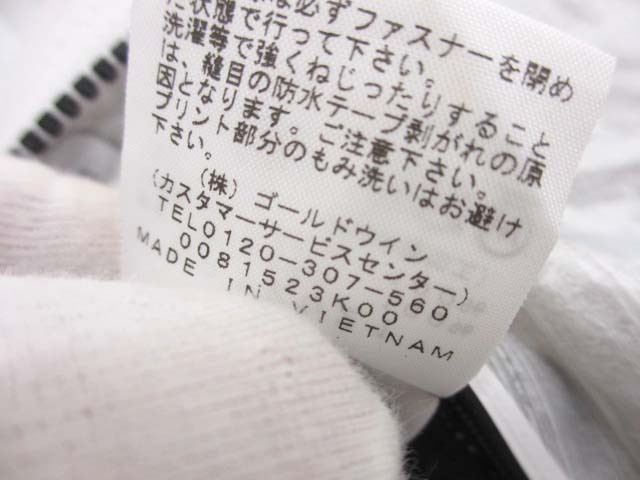 は必ずファスナーを閉め
た状態で行って下さい。
洗濯等で強くねじったりすること
は、縫目の防水テープ剥がれの原
因となります。ご注意下さい。
プリント部分のもみ洗いはお避け
下さい。
(株)ゴールドウイン
(カスタマーサービスセンター)
TEL0120-307-560
0081523K00
MADE IN VIETNAM